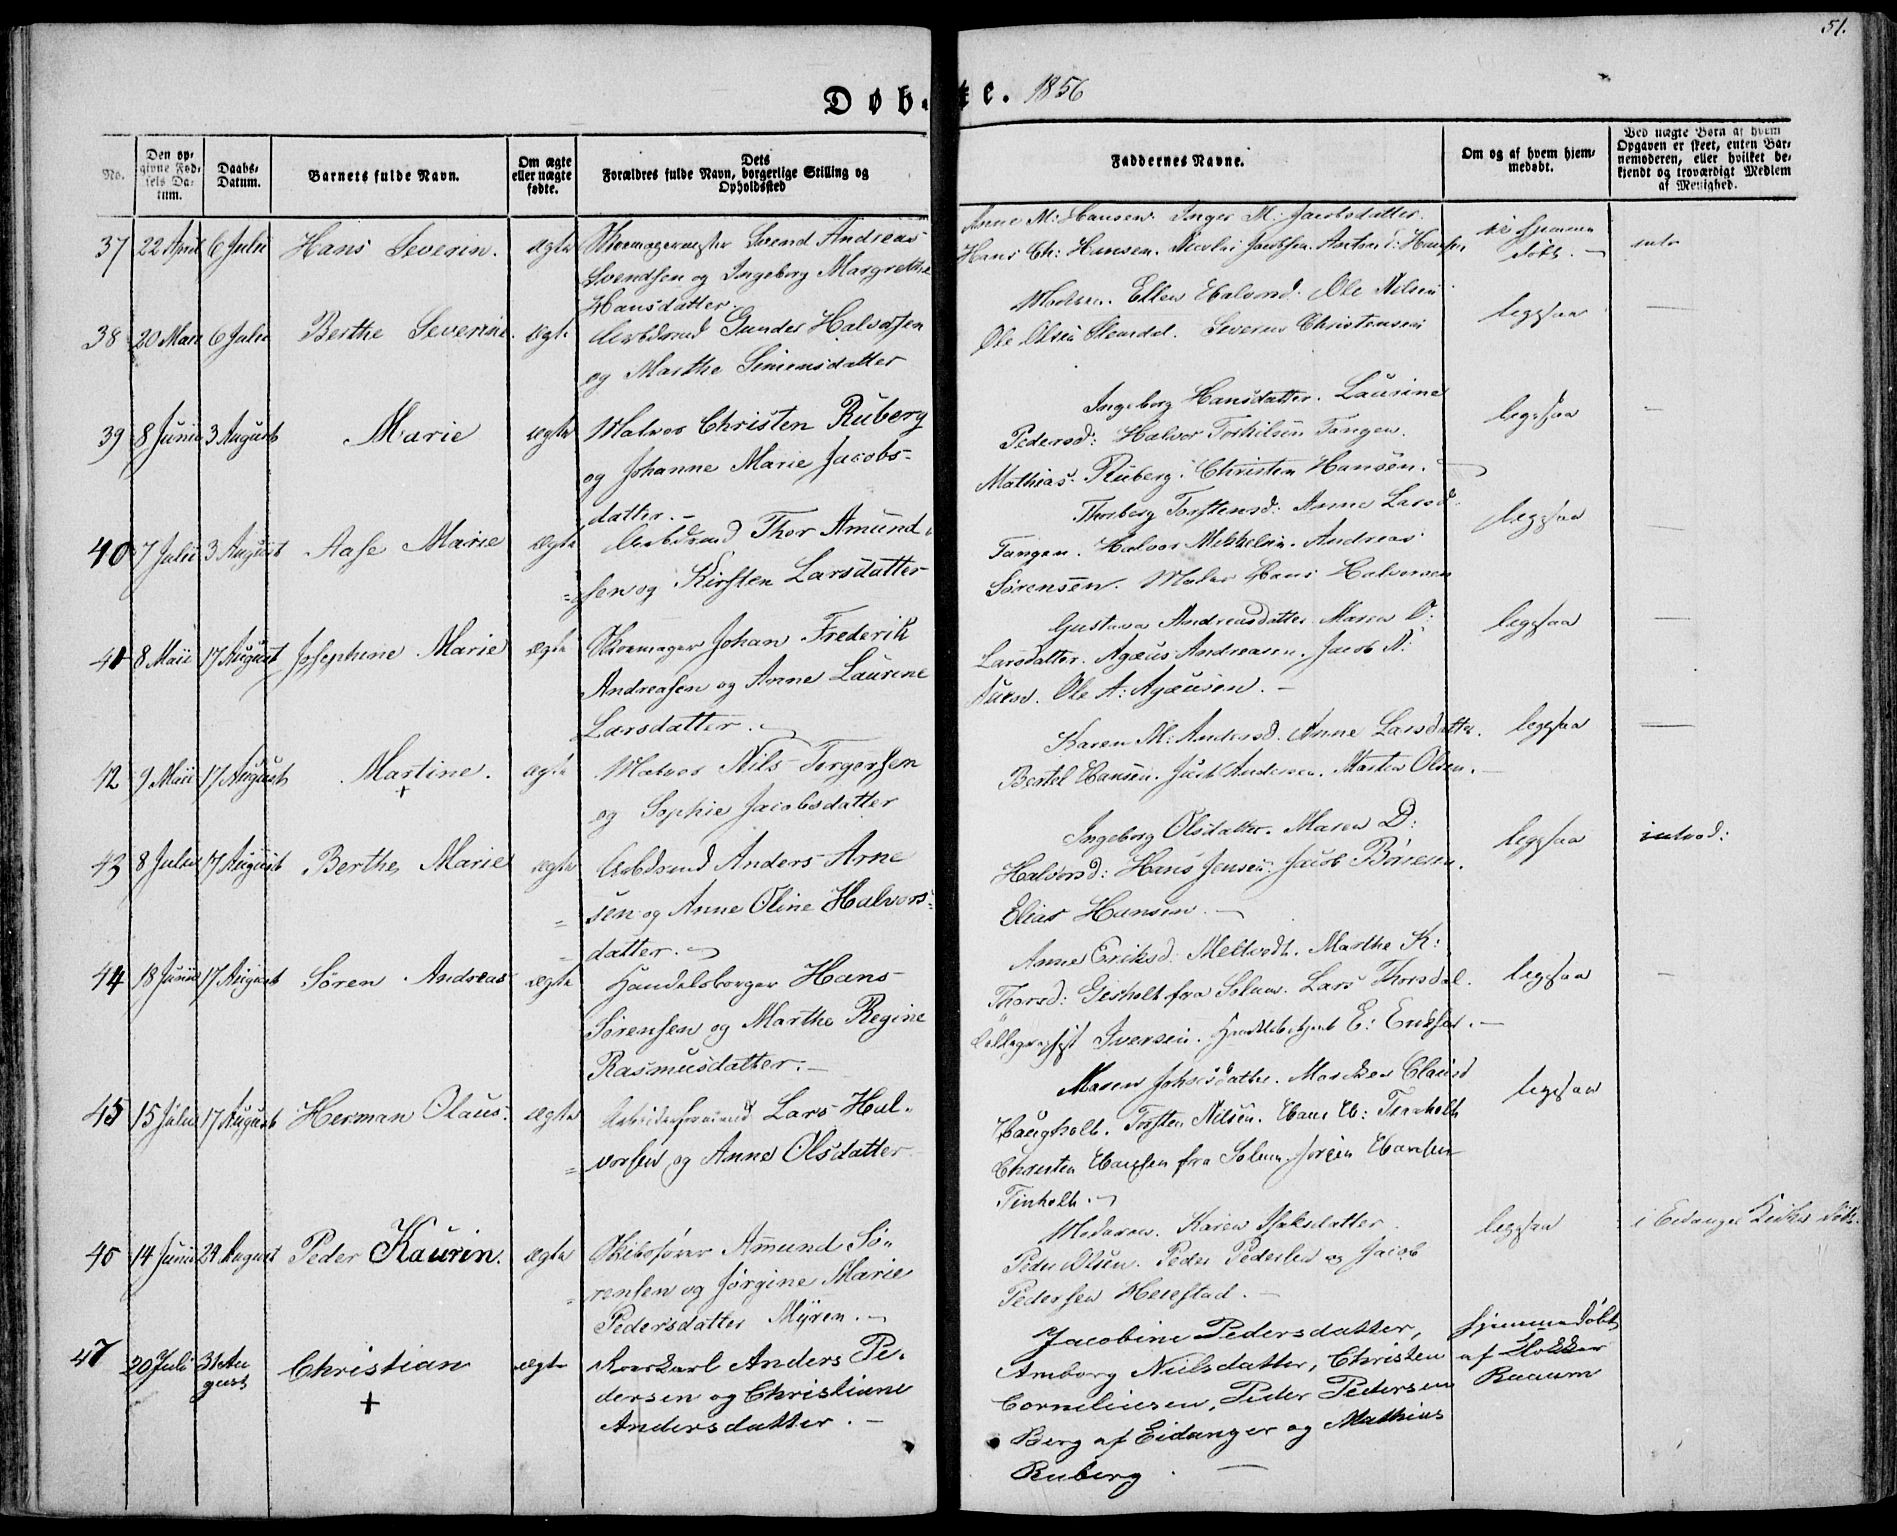 51.
Døbte. 1856
No.
Den opgivne Fødsels Datum.
Daabs-Datum.
Barnets fulde Navn.
Om ægte eller uægte fødte.
Dets Forældres fulde Navn, borgerlige Stilling og Opholdssted
Faddernes Navne.
Om og af hvem hjemmedøbt.
Ved uægte Børn af hvem Opgaven er skeet, enten Barnemoderen, eller hvilket bekjendt og troværdigt Medlem af Menighed.
37 22 April 6 Julii Hans Severin. ægte Svend Andreas
Svendsen og Ingeborg Margrethe
Hansdatter.
Anne M: Hansen. Inger M: Jacobsdatter.
Hans Ch: Hansen. Nicolai Jacobsen.
38 20 Marts 6 Julii Berthe Severine ægte Arbdsmd Gunder Halvorsen
og Marthe Simensdatter
Moderen. Ellen Halvorsd. Ole Nilsen
Ole Olsen Severin Christensen
legesaa
39 8 Junii 3 August Marie ægte Matros Christen Ruberg
og Johanne Marie Jacobs-
datter.
Ingeborg Hansdatter. Laurine
Pedersd: Halvor Torkilsen Tangen.
Mathias Ruberg. Christen Hansen.
legesaa
40 7 Julii 3 August Aase Marie ægte Arbdsmd Thor Amund-
sen og Kirsten Larsdatter
Thorberg Torstensd: Anne Larsd
Tangen. Halvor Mikkelsen. Andreas
Sørensen. Hans Halvorsen
legesaa
41 8 Maii 17 August Josephine Marie ægte Skomager Johan Frederik
Andreasen og Anne Laurine
Larsdatter.
Gustava Andreasdatter Maren O:
Larsdatter. Agæus Andreasen. Jacob A:
Ole A: Agæusen.
legesaa
42 9 Maii 17 August Martine. + ægte Matros Nils Torgersen
og Sophie Jacobsdatter
Karen M: Andersd. Anne Larsdatter.
Bertel Hansen. Just Andersen. Martin Olsen.
legesaa
43 8 Julii 17 August Berthe Marie ægte Arbdsmd Anders Arne
sen og Anne Oline Halvors-
datter.
Ingeborg Olsdatter. Maren D:
Halvorsd: Hans Jensen. Jacob Børresen.
Elias Hansen.
legesaa
44 18 Junii 17 August Søren Andreas ægte Handelsborger Hans
Sørensen og Marthe Regine
Rasmusdatter.
Anne Eriksd: Meltvedt. Marthe K:
Thorsd: Gisholt fra Solum. Lars Thorsdal.
Iversen. E: Eriksen.
legesaa
45 15 Julii 17 August Herman Olaus. ægte Arbeidsformand Lars Hal-
vorsen og Anne Olsdatter
Maren Johnsdatter. Claüsd
Haugholt. Torsten Nilsen. Hans H:
Christen Hansen fra Solum. Jørgen Hansen
Tinholt.
legesaa
46 14 Junii 24 August Peder Kaurin. ægte Skibsfører Amund Sø-
rensen og Jørgine Marie
Pedersdatter Myren.
Moderen. Karen Isaksdatter
Peder Olsen. Peder Pedersen og Jacob
Pedersen Herestad.
legesaa
i Eidanger Kirke døbt.
47 20 Juli 31 Au
gust Christian + ægte Anders Pe-
dersen og Christiane
Andersdatter.
Jacobine Pedersdatter,
Amborg Nielsdatter, Christen
Corneliusen, Peder Pedersen
Berg af Eidanger og Mathias
Ruberg.
hjemmedøbt
af Klokker
Raaum